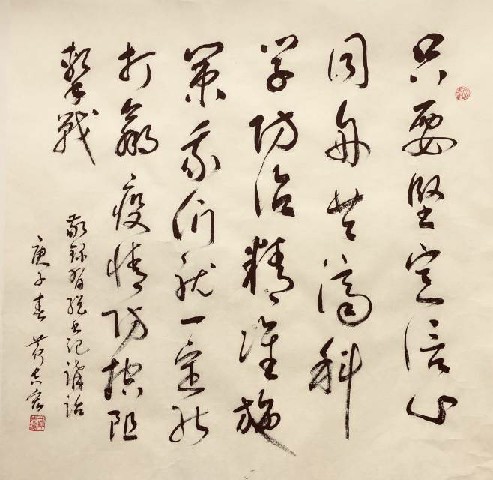 只要坚定信心
同舟共济科
学防治精准施
策我们就一定能
打赢疫情防控阻
击战
敬录习总书记讲话
庚子春